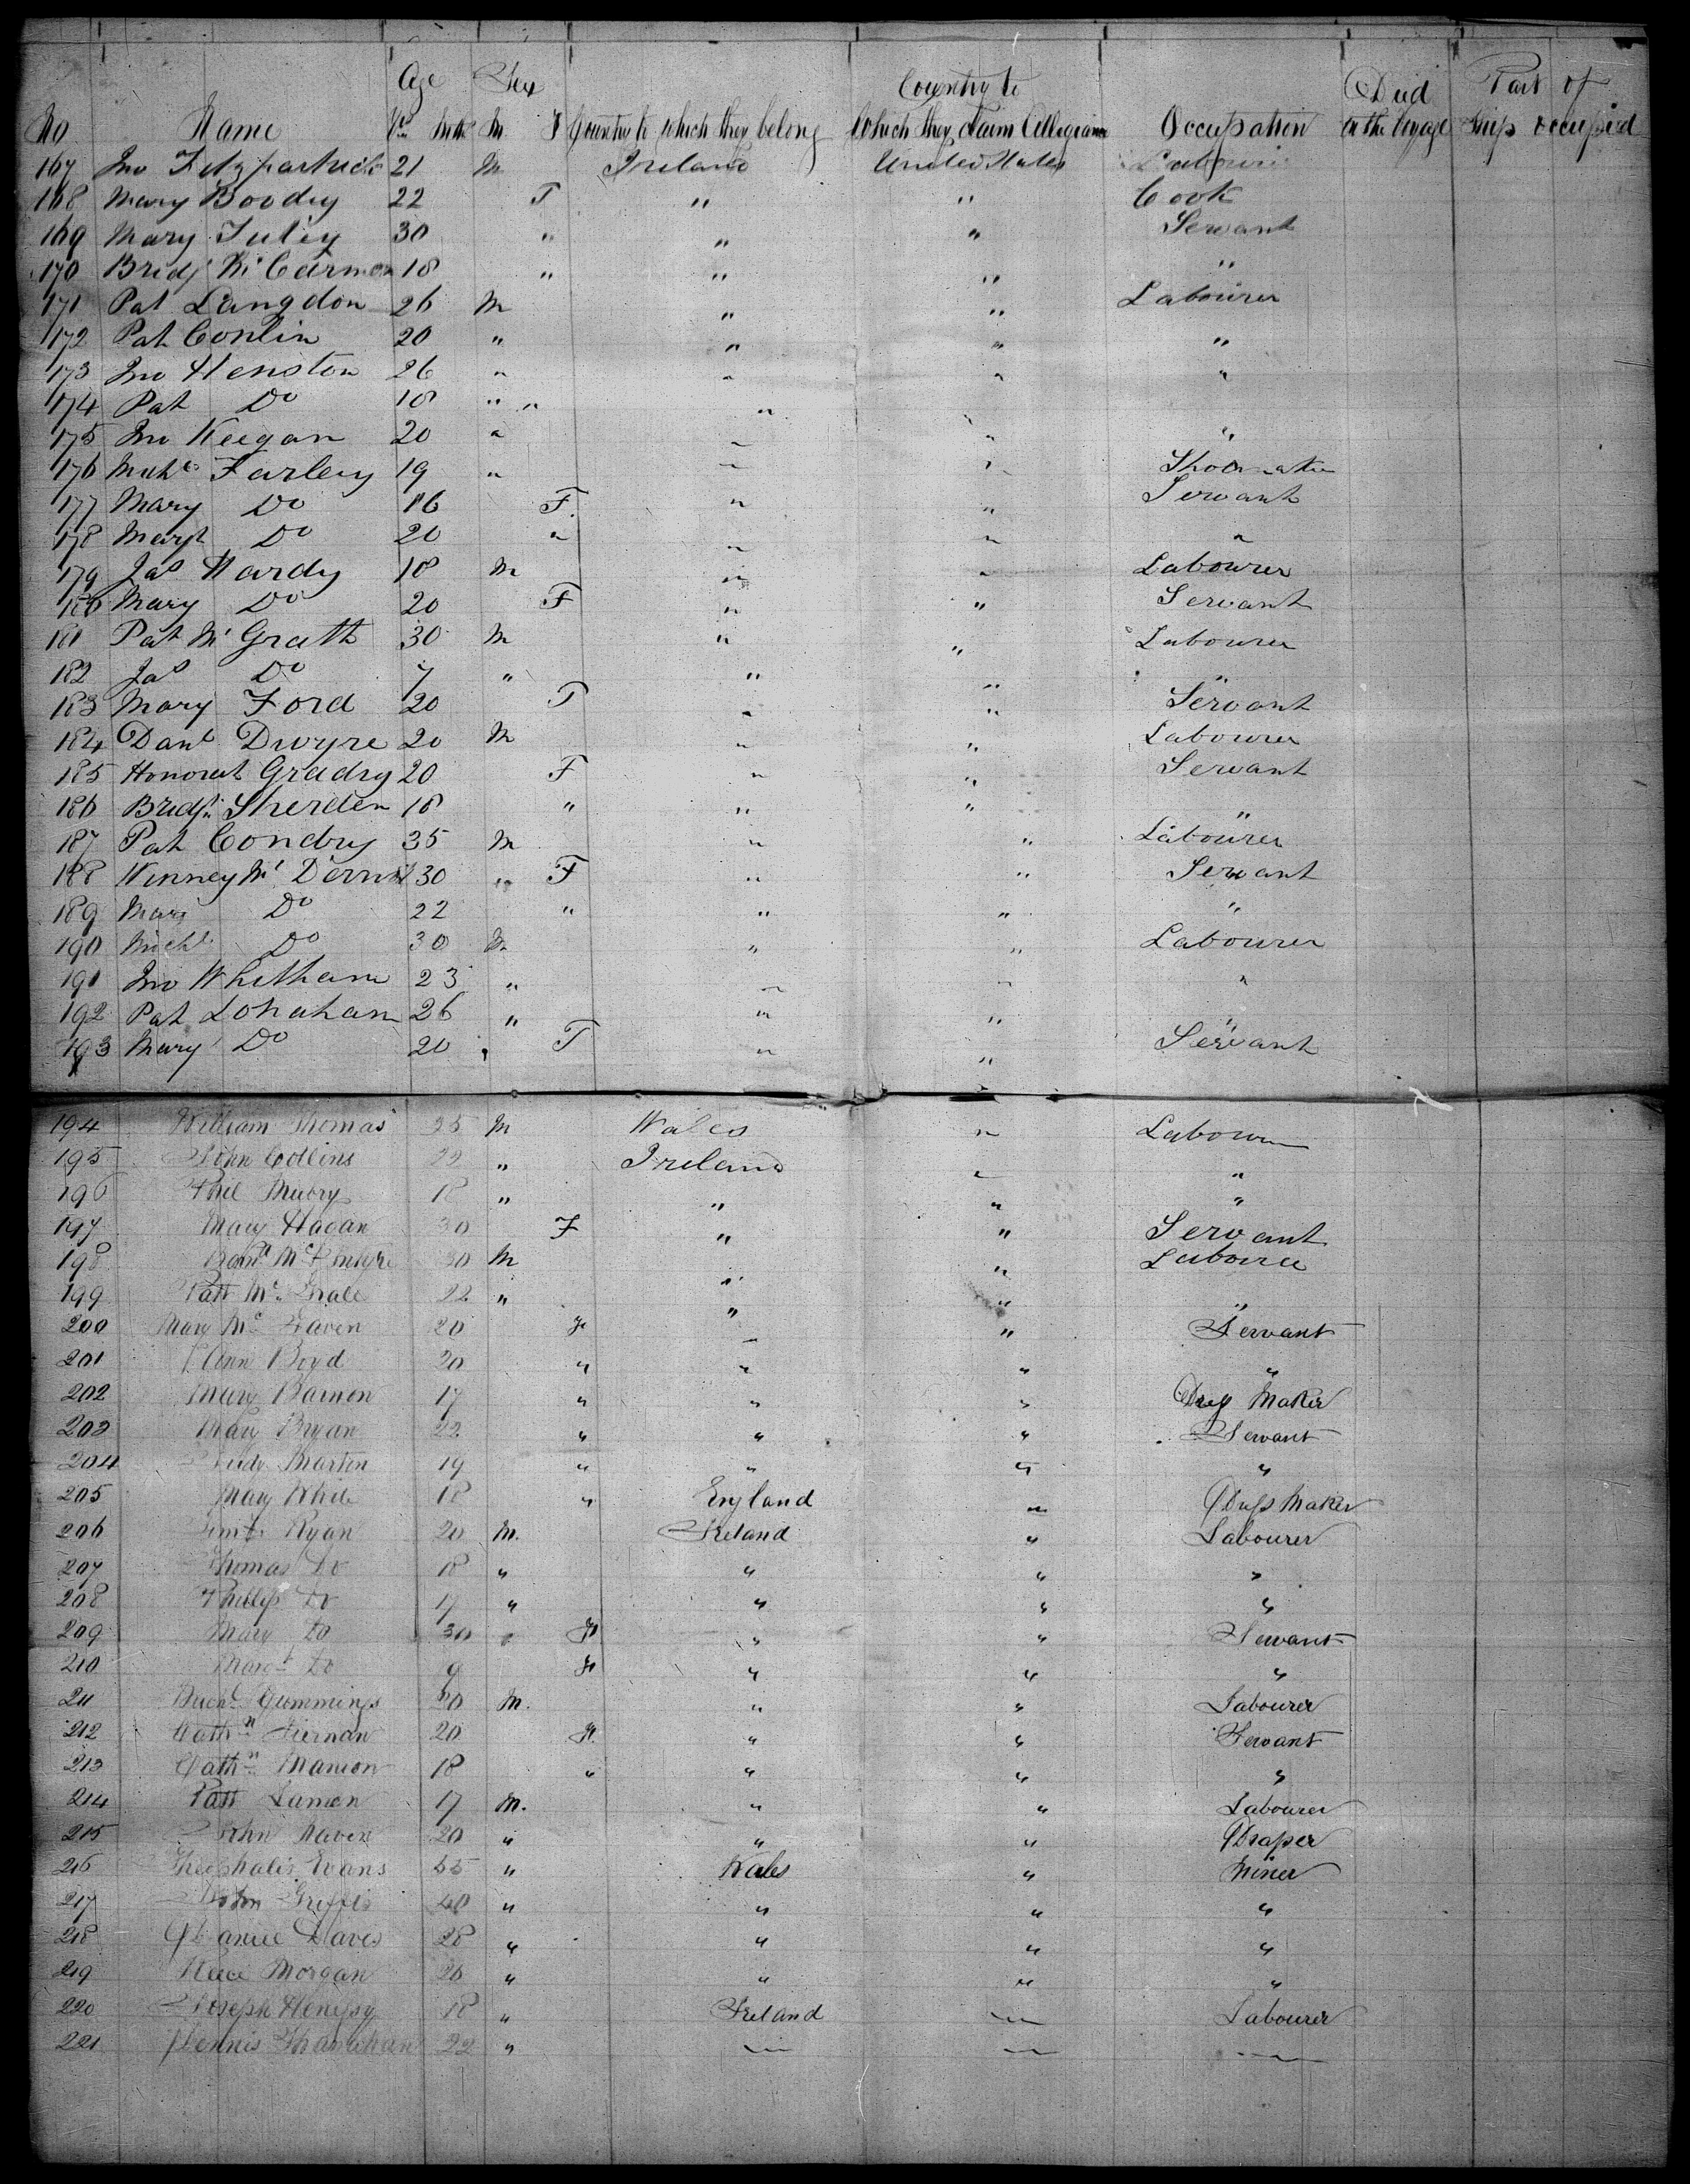 Age Sex Country to Died Part of
No Name Yrs Mths M F Country to which they belong Which they claim Allegiance Occupation On the Voyage Ship occupied
167 Jno Fitzpartrick 21 M Ireland United States Labourer
168 Mary Boodry 22 F " " Cook
169 Mary Tuley 30 " " " Servant
170 Bridj Mc 18 " " " "
171 Pat Langdon 26 M " " Labourer
172 Pat Conlin 20 " " " "
173 Jno Henston 26 " " " "
174 Pat Do 18 " " " "
175 Jno Keegan 20 " " " "
176 Michl Farley 19 " " " Shoemaker
177 Mary Do 16 F. " " Servant
178 Margt Do 20 " " " "
179 Jas Hardy 18 M " " Labourer
180 Mary Do 20 F " " Servant
181 Pat Mc Grath 30 M " " Labourer
182 Jas Do 7 " " " "
183 Mary Ford 20 F " " Servant
184 Danl Dwyre 20 M " " Labourer
185 Honorah Gradry 20 F " " Servant
186 Bridjt Sherden 18 " " " "
187 Pat Condry 35 M " " Labourer
188 Winney Mc Dermit 30 " F " " Servant
189 Mary Do 22 " " " "
190 Michl Do 30 M " " Labourer
191 Jno Whitham 23 " " " "
192 Pat Lonaham 26 " " " "
193 Mary Do 20 F " " Servant
194 William Thomas 25 M Wales " Labourer
195 John Collins 22 " Ireland " "
196 Phil 18 " " " "
197 Mary Hagan 30 F " " Servant
198 Mc Intyre 30 M " " Labourer
199 Patt Mc Hale 22 " " " "
200 Mary Mc Gaven 20 F " " Servant
201 Ann Boyd 20 " " " "
202 Mary Barnon 17 " " " Dress Maker
203 Mary Bryan 22 " " " Servant
204 Martin 19 " " " "
205 Mary White 18 " England " Dress Maker
206 Ryan 20 M. Ireland " Labourer
207 Thomas Do 18 " " " "
208 Phillip Do 17 " " " "
209 Mary Do 30 " F " " Servant
210 Margt Do 9 F " " "
211 Michl Cummings 30 M. " " Labourer
212 Cathn Tiernan 20 F. " " Servant
213 Cathn Manion 18 " " " "
214 Patt Lamon 17 M. " " Labourer
215 John Naven 20 " " " Draper
216 Theophalis Evans 55 " Wales " Miner
217 John Griffis 40 " " " "
218 Daniel Daves 28 " " " "
219 Reece Morgan 26 " " " "
220 Joseph Henessy 18 " Ireland " Labourer
221 Dennis 22 " " " "